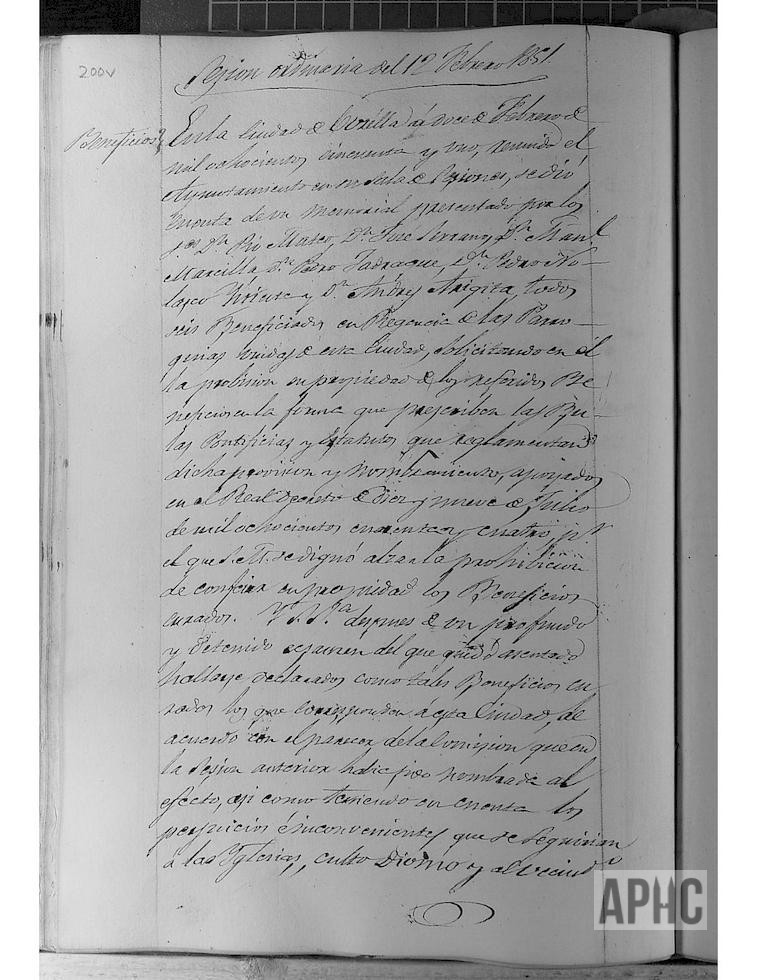 200v
Sesion ordinaria del 12 Febrero 1851.
Beneficios
En la Ciudad de Corella á doce de Febrero de
mil ochocientos cincuenta y uno, reunido el
Ayuntamiento en su Sala de Sesiones, se dió
cuenta de un memorial presentado por los
S.res Dn. Pio Mateo, Dn. Jose Serrano, Dn. Man.l
Marcilla, Dn. Pedro Jadraque, Dn. Pedro No-
lasco y Dn. Andres Arigita, todos
seis Beneficiados en Regencia de las Parro-
quias unidas de esta Ciudad, solicitando en él
la provision en propiedad de los referidos Be
neficios en la forma que prescriben las Bu-
las Pontificias y Estatutos que reglamentan
dicha provision y nombramiento, apoyados
en el Real Decreto de diez y nueve de Julio
de mil ochocientos cuarenta y cuatro, pr
el que S. M. se dignó alzar la prohibicion
de conferir en propiedad los Beneficios
curados. Y S.S.a despues de un profundo
y detenido examen del que quedó asentado
hallarse declarados como tales Beneficios cu
rados los que corresponden a esta Ciudad, de
acuerdo con el parecer de la Comision que en
la Sesion anterior habia sido nombrada al
efecto, asi como teniendo en cuenta los
perjuicios é inconvenientes que se seguirian
á las Yglesias, culto Divino y al vecind.o
APHC